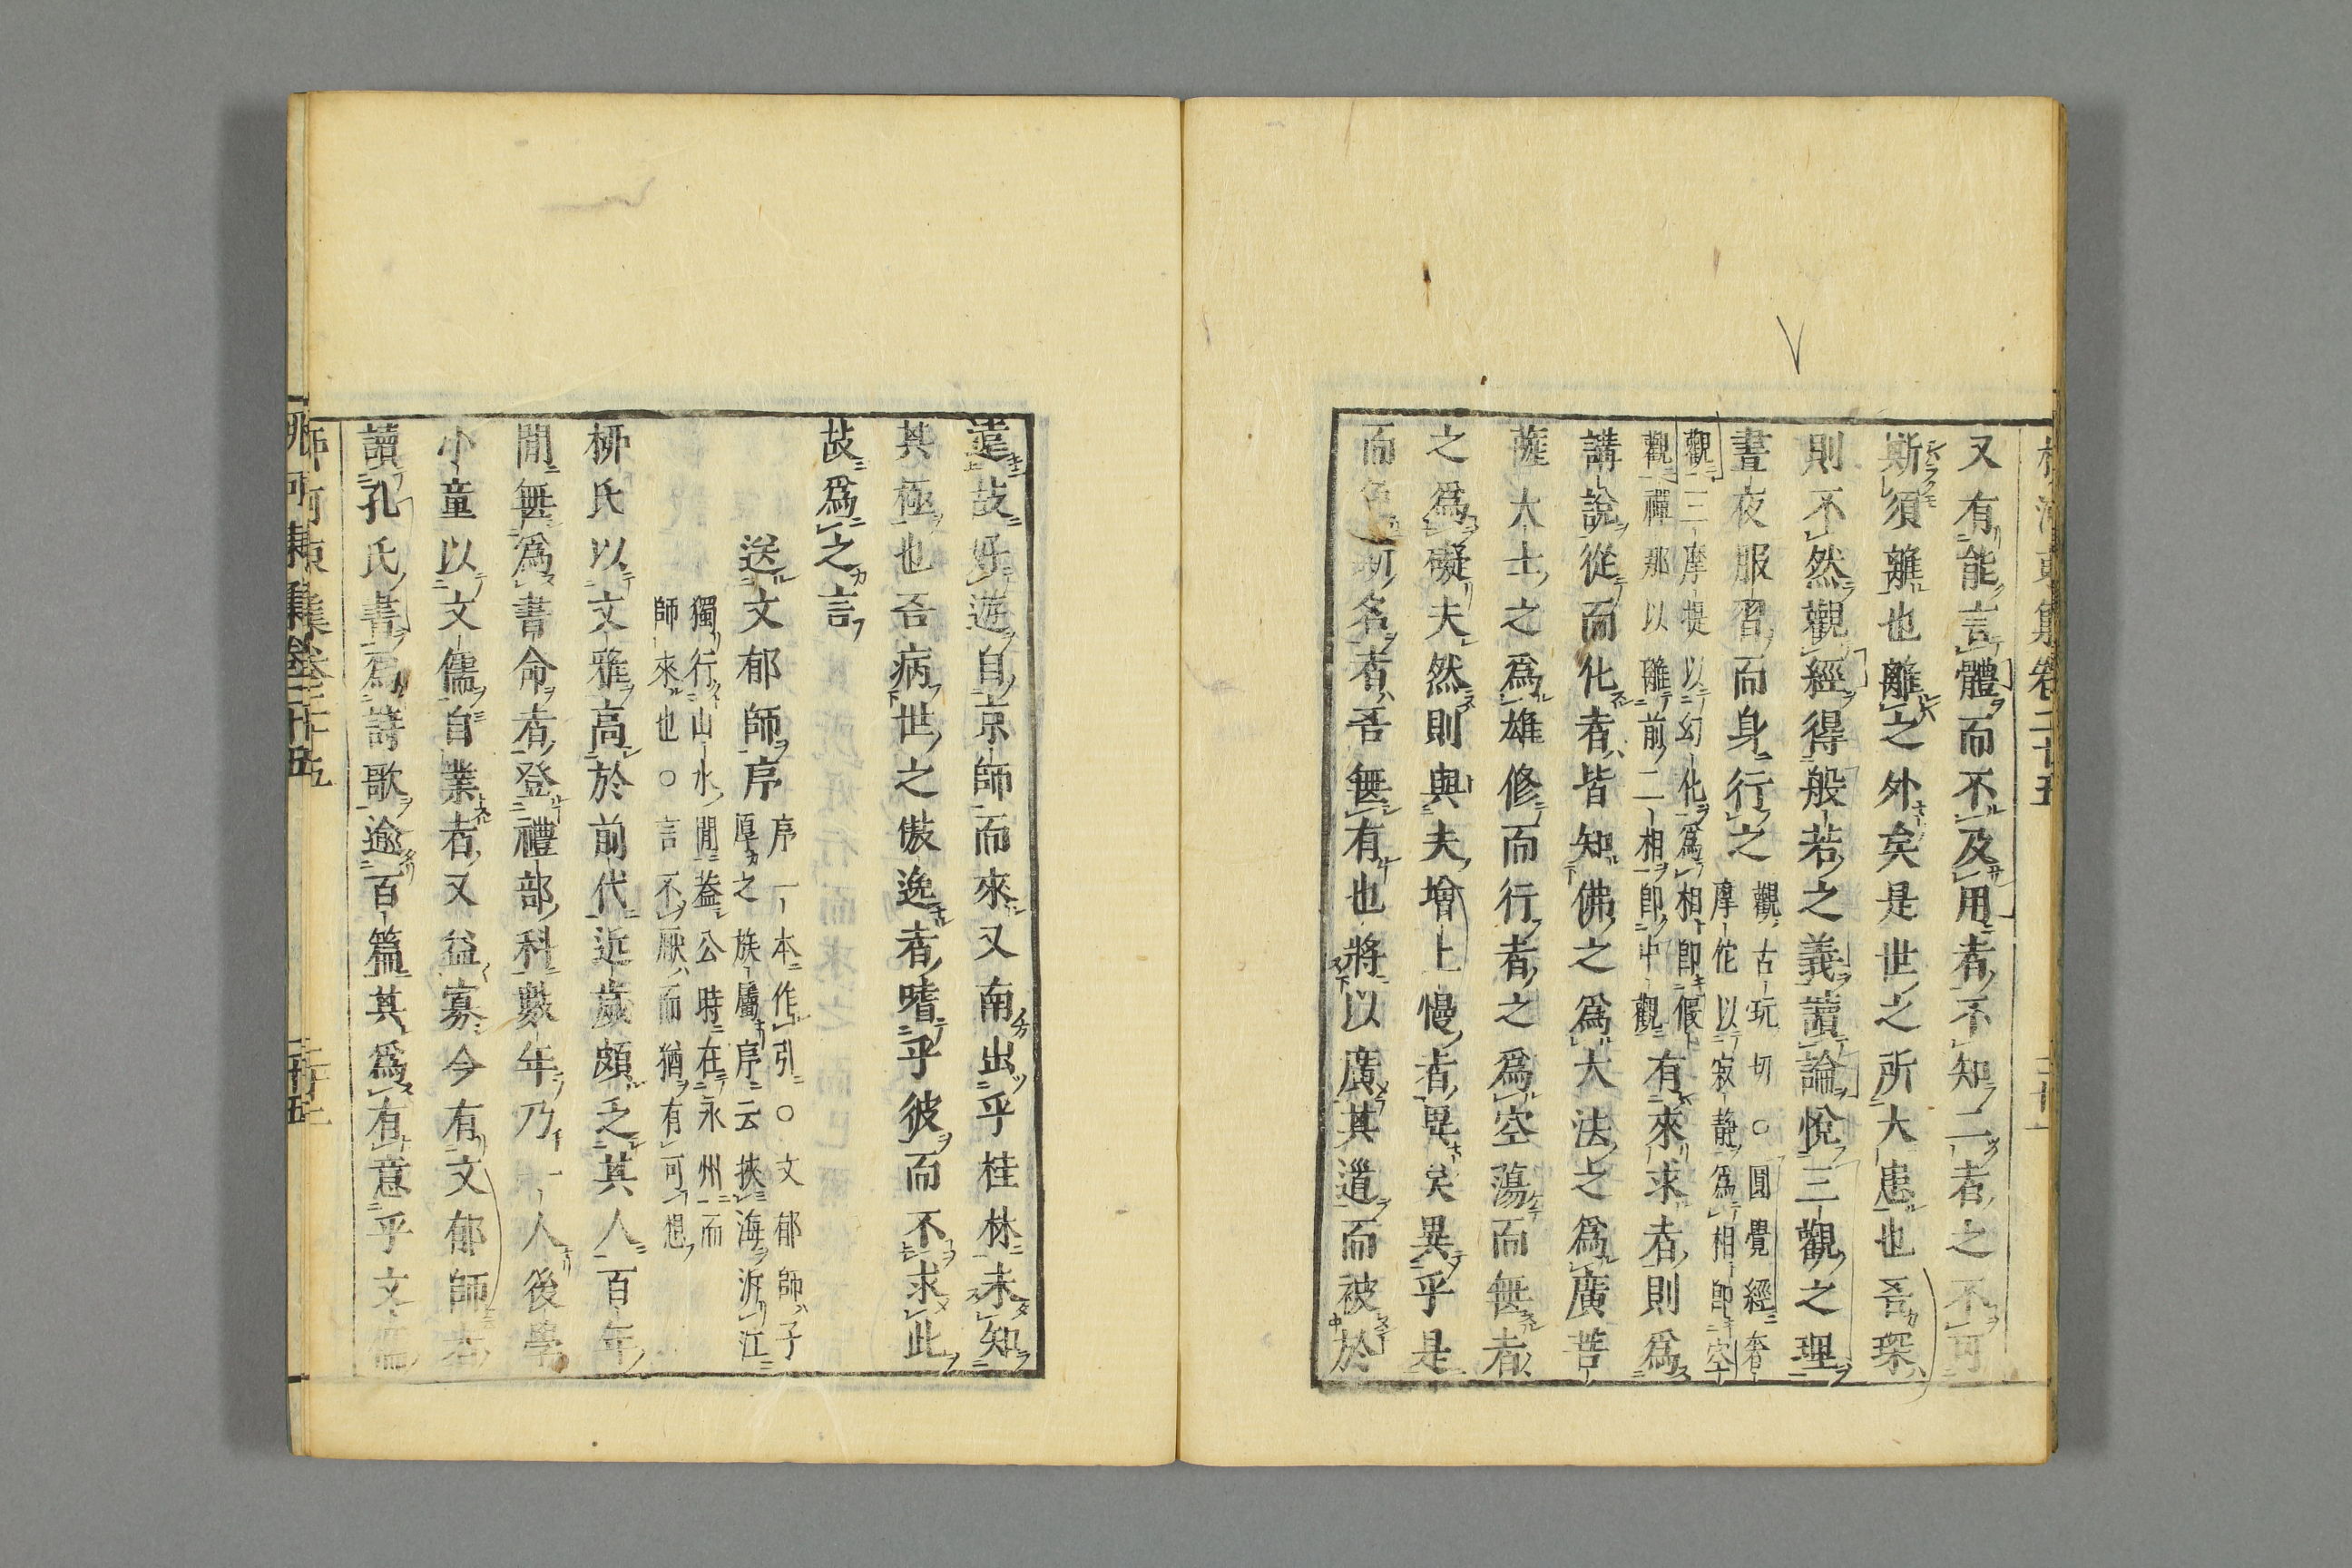 又有能言體而不及用者不知二者之不可
斯須離也離之外矣是世之所大患也吾琛
則不然觀經得般若之義讀論悅三觀之理
晝夜服習而身行之
觀古玩切○圓覺經奢
摩佗以寂靜爲相即空
觀三摩提以幻化爲相即假
觀禪那以離前二相即中觀
有來求者則爲
講說從而化者皆知佛之爲大法之爲廣菩
薩大士之爲雄修而行者之爲空蕩而無者
之爲礙夫然則與夫增上慢者異矣異乎是
而
名者吾無有也將以廣其道而被於
遣故好遊自京師而來又南出乎桂林未知
其極也吾病世之傲逸者嗜乎彼而不求此
故爲之言
送文郁師序
序一本作引○文郁師子
厚之族屬序云挾海泝江
獨行山水間蓋公時在永州而
師來也○言不厭而猶有可想
柳氏以文雅高於前代近歲頗乏其人百年
間無爲書命者登禮部科數年乃一人後學
小童以文儒自業者又益寡今有文郁師者
讀孔氏書爲詩歌逾百篇其爲有意乎文儒